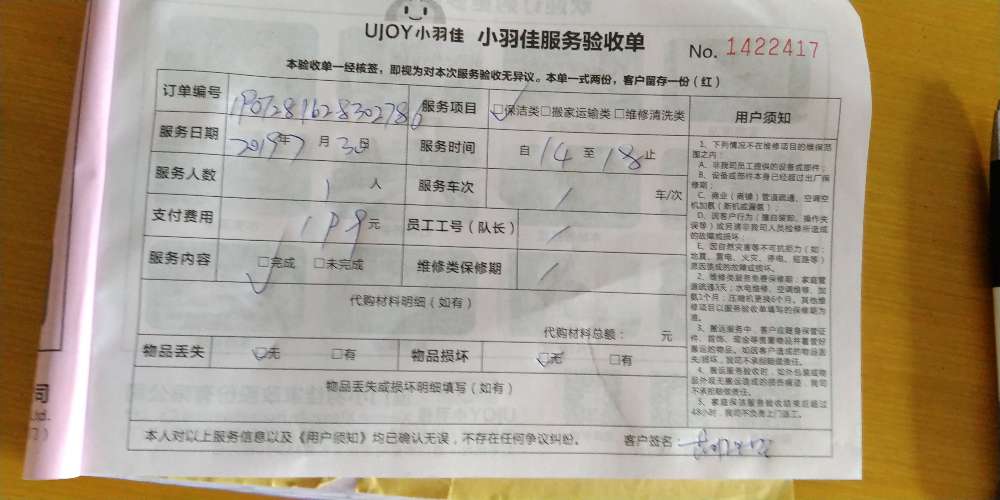 UJOY小羽佳 小羽佳服务验收单 No. 1422417
本验收单一经核签，即视为对本次服务验收无异议。本单一式两份，客户留存一份（红）
订单编号 1907281628302786 服务项目 □保洁类□搬家运输类□维修清洗类
服务日期 2019年7月30日 服务时间 自14至18止
服务人数 1人 服务车次 / 车/次
支付费用 199元 员工工号（队长） /
服务内容 □完成 □未完成 维修类保修期 /
代购材料明细（如有）
代购材料总额： 元
物品丢失 □无 □有 物品损坏 □无 □有
物品丢失或损坏明细填写（如有）
用户须知
1、下列情况不在维修项目的维保范
围之内：
A、非我司员工提供的设备或部件；
B、设备或部件本身已经超过出厂保
修期；
C、商业（商铺）管道疏通、空调空
机加氨（新机或漏氨）；
D、因客户行为（擅自装卸、操作失
误等）或另请非我司人员检修所造成
的故障或损坏；
E、因自然灾害等不可抗拒力（如：
地震、雷电、火灾、停电、短路等）
原因造成的故障或损坏。
2、维修类服务免费保修期：家庭管
道疏通3天；水电维修、空调维修、加
氨1个月；压缩机更换6个月。其他维
修项目以服务验收单填写的保修期为
准。
3、搬运服务中，客户应随身保管证
件、首饰、现金等贵重物品并看管好
搬运的物品。如因客户造成的物品丢
失/损坏，我司不承担赔偿责任。
4、搬运服务验收时，如外包装或物
品外观无搬运造成的损伤痕迹，我司
不承担赔偿责任。
5、家庭保洁服务验收结束后超过
48小时，我司不负责上门返工。
本人对以上服务信息以及《用户须知》均已确认无误，不存在任何争议纠纷。 客户签名
司
Ltd.